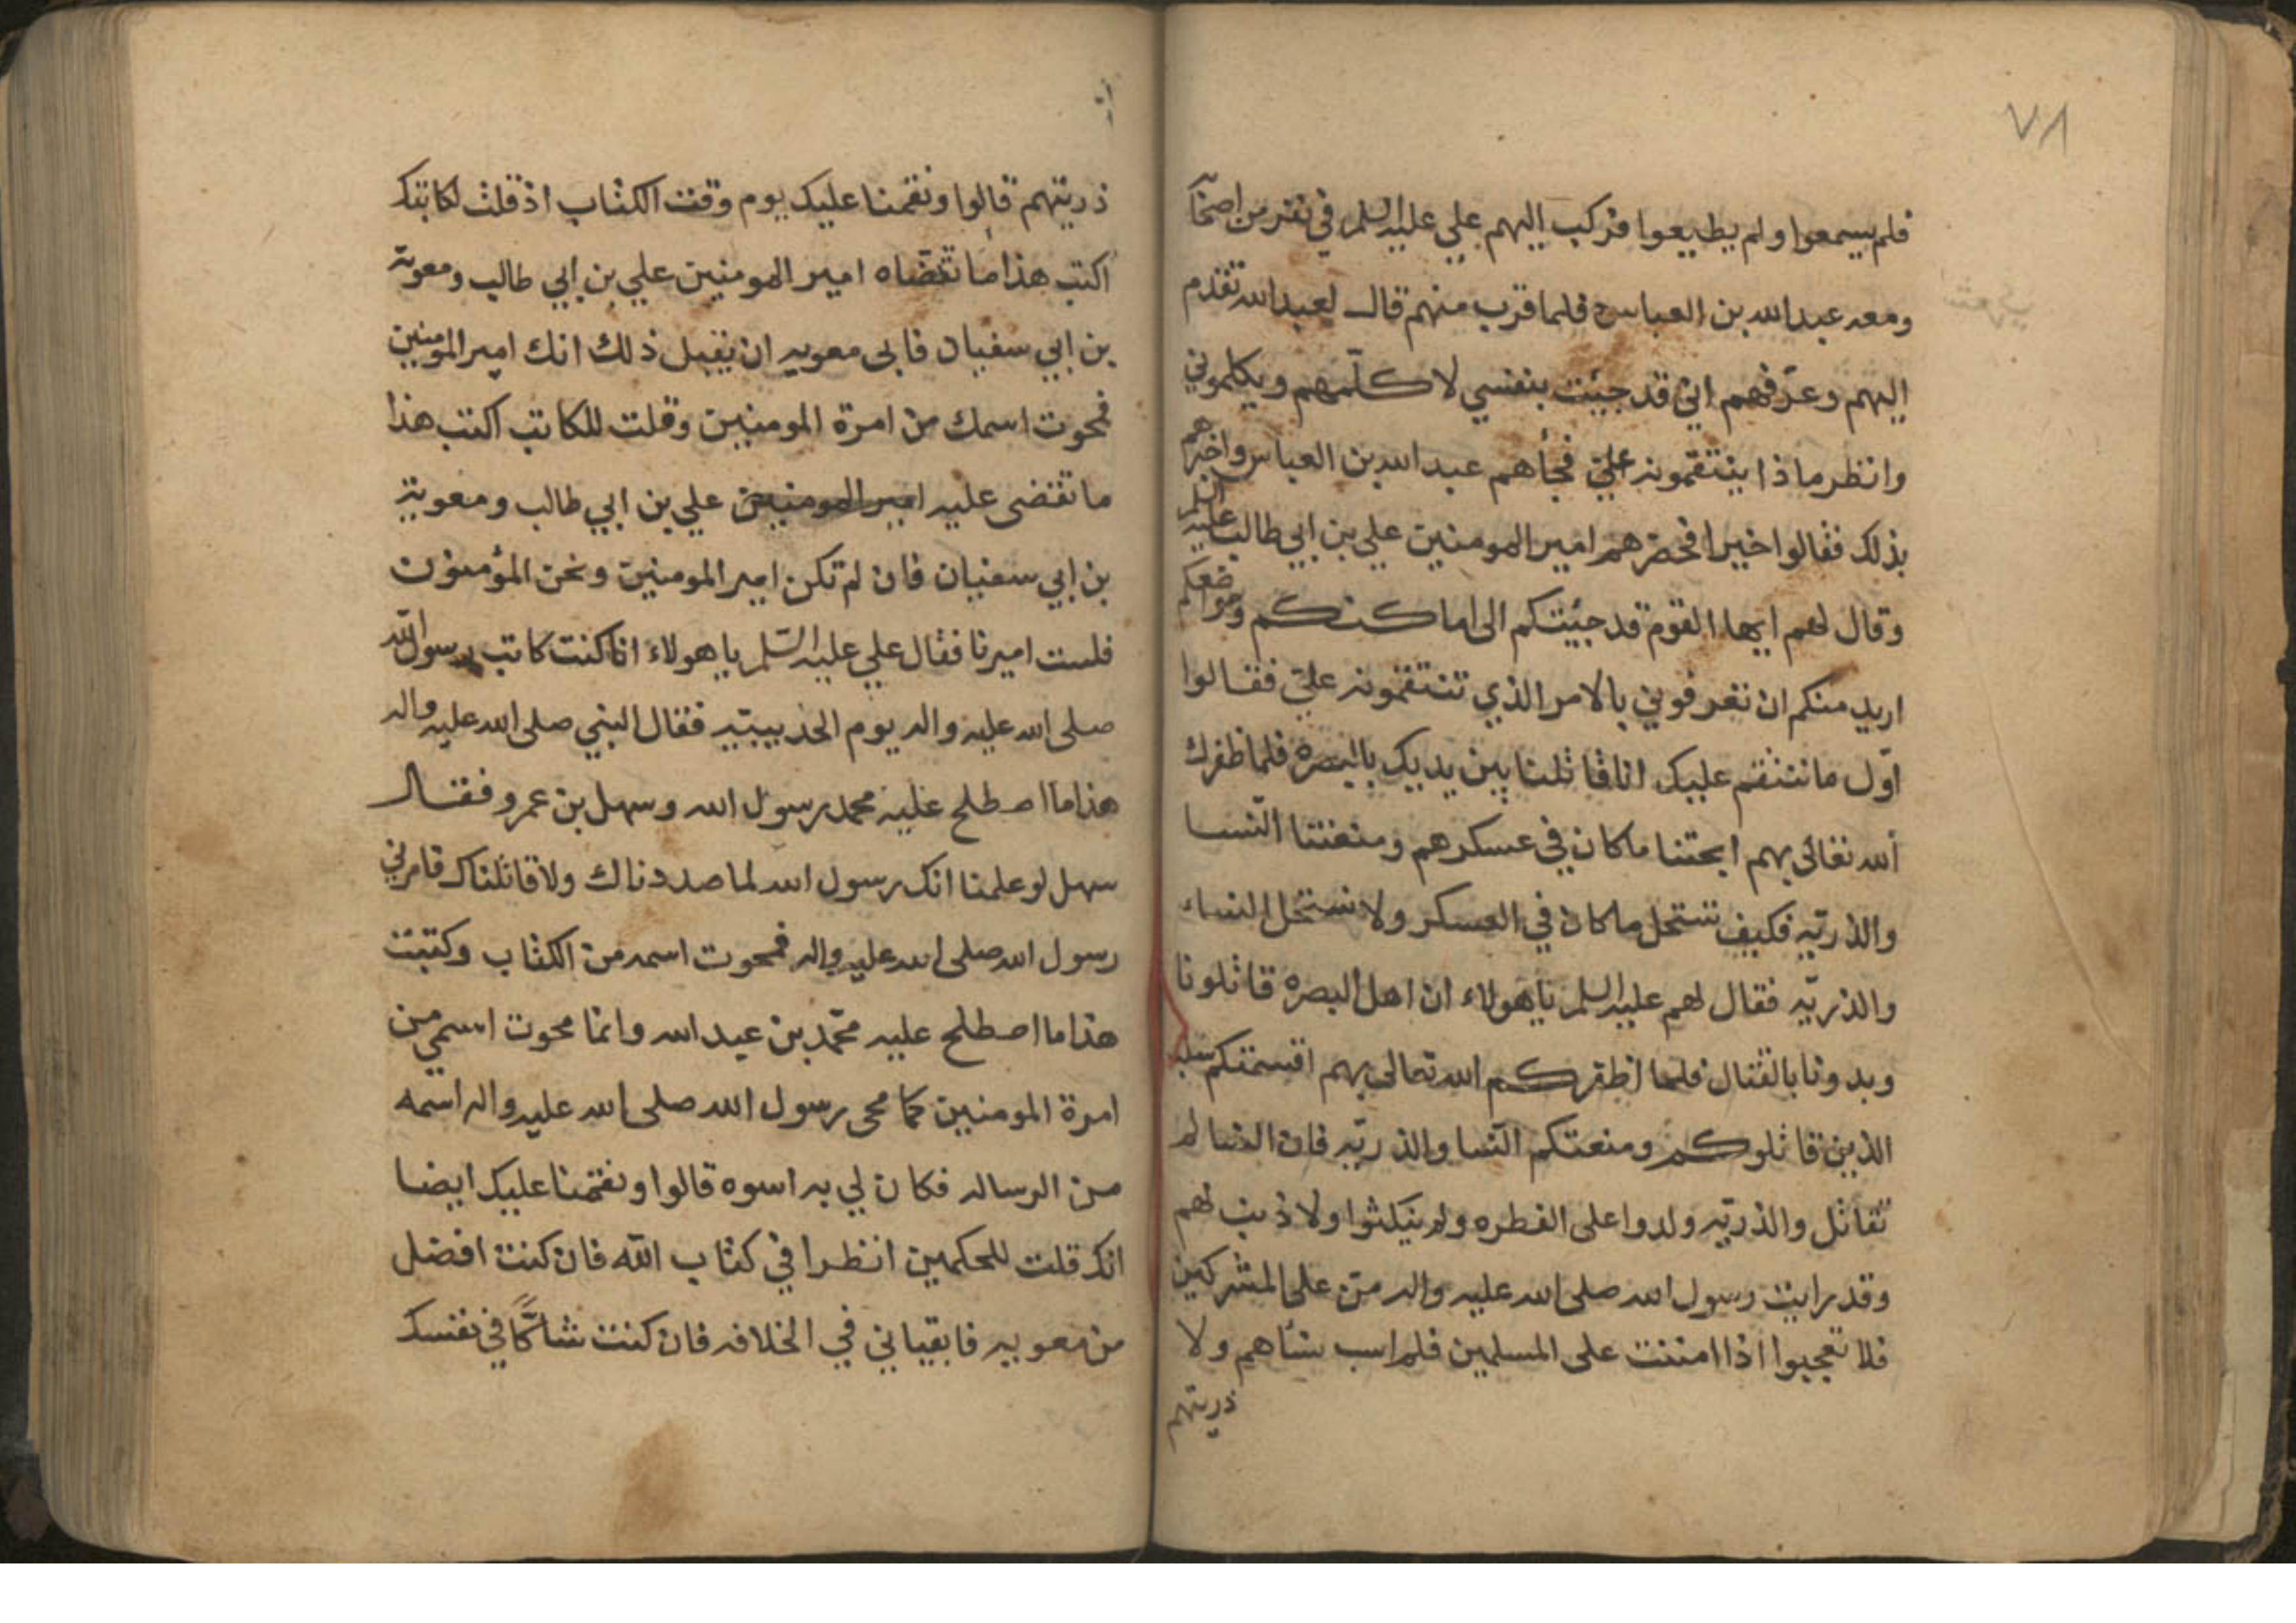 ٧٨
فلم يسمعوا ولم يطيعوا فركب اليهم علي عليه السلم في نفر من اصحا
ومعه عبد الله بن العباس فلما قرب منهم قال لعبد الله تقدم
اليهم وعرّفهم اني قد جيئت بنفسي لاكلّمهم ويكلموني
وانظر ماذا ينتقمونه عليّ فجأهم عبد الله بن العباس واخبرهم
بذلك فقالوا خيرا فحضرهم امير المومنين علي بن ابي طالب عليه السلم
وقال لهم ايها القوم قد جيئتكم الى اماكنكم ومواضعكم
اريد منكم ان تعرفوني بالامر الذي تنتقمونه عليّ فقالوا
اوّل ما ننتقم عليك انا قاتلنا بين يديك بالبصرة فلما ظفرك
الله تعالى بهم ابحتنا ما كان في عسكرهم ومنعتنا النّسا
والذريّه فكيف نستحل ما كان في العسكر ولا نستحل النساء
والذريّه فقال لهم عليه السلم ياهولاء ان اهل البصره قاتلونا
وبدونا بالقتال فلما اظفركم الله تعالى بهم اقسمتكم سلب
الذين قاتلوكم ومنعتكم النّسا والذريّه فان النسا لم
تقاتل والذريّه ولدوا على الفطره ولم ينكثوا ولا ذنب لهم
وقد رايت رسول الله صلى الله عليه واله منّ على المشركين
فلا تعجبوا اذا امننت على المسلمين فلم اسب نسأهم ولا
ذريتهم
ذريتهم قالوا ونقمنا عليك يوم وقت الكتاب اذ قلت لكاتبك
اكتب هذا ما تقضاه امير المومنين علي بن ابي طالب ومعوية
بن ابي سفيان فابى معويه ان يقبل ذلك انك امير المومنين
فمحوت اسمك من امرة المومنين وقلت للكاتب اكتب هذا
ما تقضى عليه امير المومنين علي بن ابي طالب ومعوية
بن ابي سفيان فان لم تكن امير المومنين ونحن المؤمنون
فلست اميرنا فقال علي عليه السّلم ياهولاء انا كنت كاتب رسول الله
صلى الله عليه واله يوم الحديبيّه فقال النبي صلى الله عليه واله
هذا ما اصطلح عليه محمد رسول الله وسهل بن عمرو فقال
سهل لو علمنا انك رسول الله لما صددناك ولا قاتلناك فامرني
رسول الله صلى الله عليه واله فمحوت اسمه من الكتاب وكتبت
هذا ما اصطلح عليه محمّد بن عبد الله وانما محوت اسمي من
امرة المومنين كما محى رسول الله صلى الله عليه واله اسمه
من الرساله فكان لي به اسوه قالوا ونقمنا عليك ايضا
انك قلت للحكمين انظرا في كتاب الله فان كنت افضل
من معويه فابقياني في الخلافه فان كنت شاكًّا في نفسك